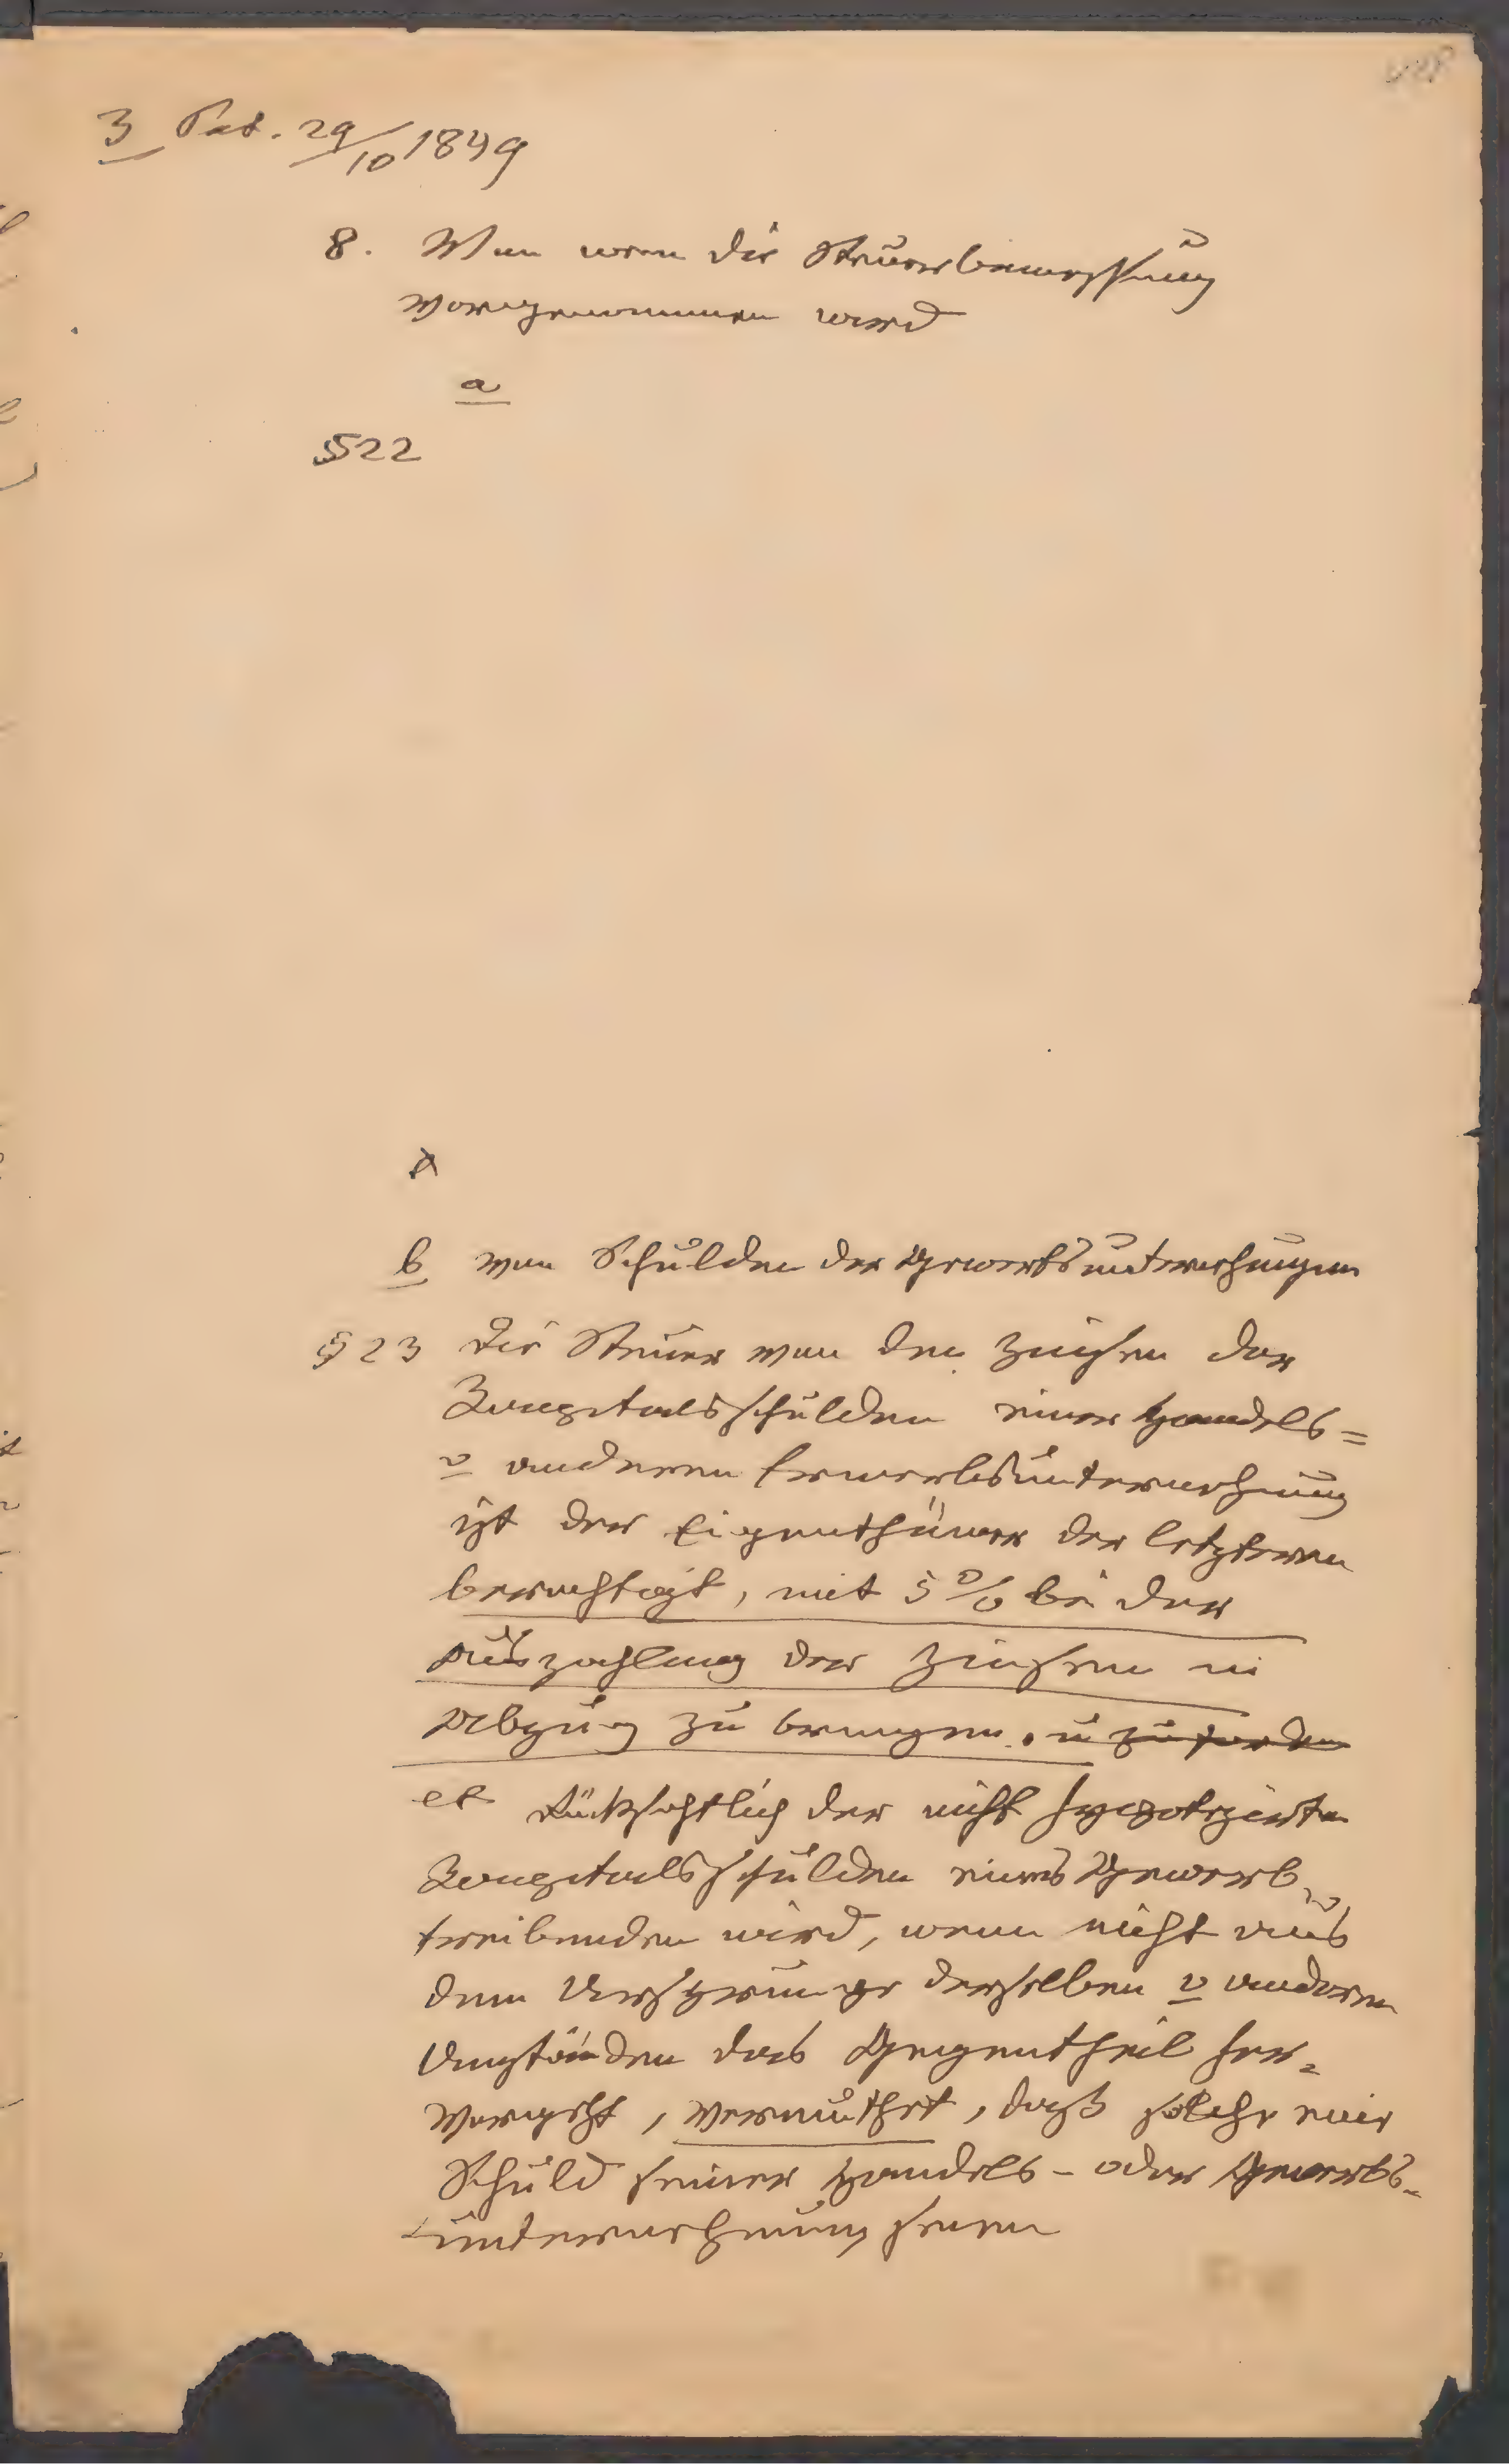 3 Pat. 29/10 1849
8. Von wem die Steuerbemessung
vorgenommen wird
a
§22
b von Schulden der Gewerbsunternehmungen
§23 Die Steuer von den Zinsen der
Kapitalsschulden einer Handels=
o anderen Erwerbsunternehmung
ist der Eigenthümer der letzteren
berechtigt, mit 5% bei der
Auszahlung der Zinsen in
Abzug zu bringen. u zu fordern
et Rücksichtlich der nicht hypotezirten
Kapitalsschulden eines Gewerb=
treibenden wird, wenn nicht aus
dem Ursprunge derselben o anderen
Umständen das Gegentheil her=
vorgeht, vermuthet, daß solche eine
Schuld seiner Handels- oder Gewerbs=
unternehmung seien